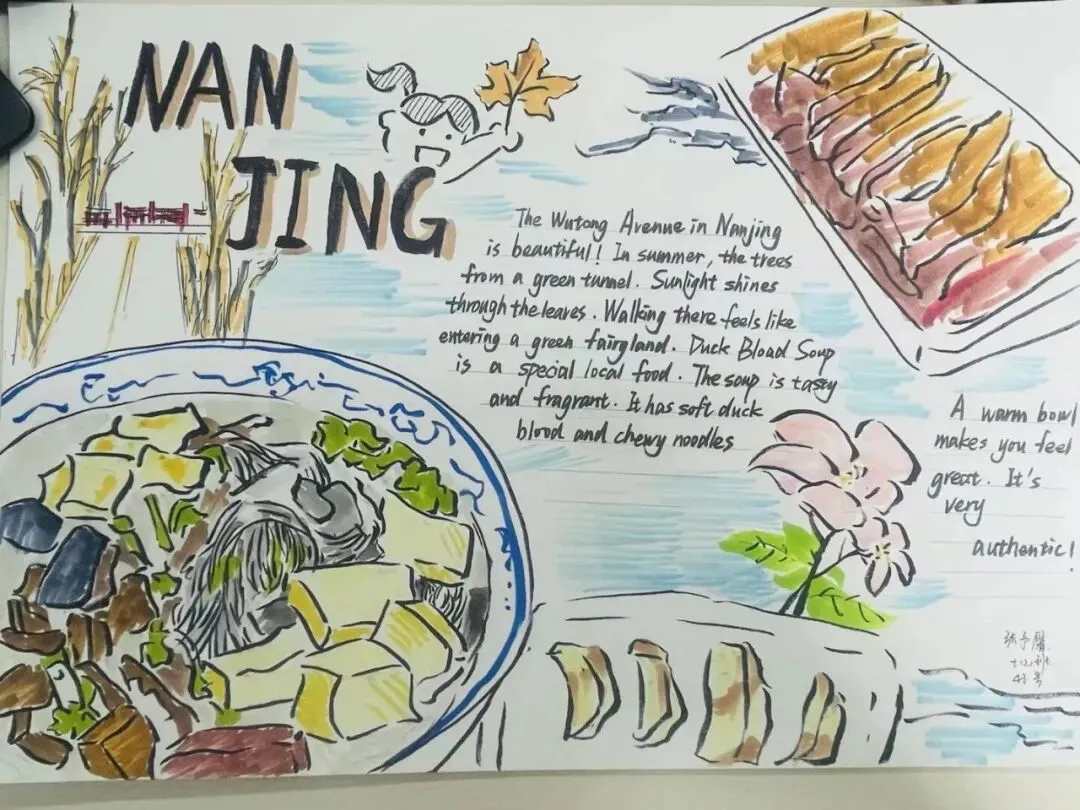 NAN
JING
The Wutong Avenue in Nanjing
is beautiful! In summer, the trees
from a green tunnel. Sunlight shines
through the leaves. Walking there feels like
entering a green fairyland. Duck Bload Soup
is a special local food. The soup is tasty
and fragrant. It has soft duck
blood and chewy noodles
A warm bowl
makes you feel
great. It's
very
authentic!
张予
43号